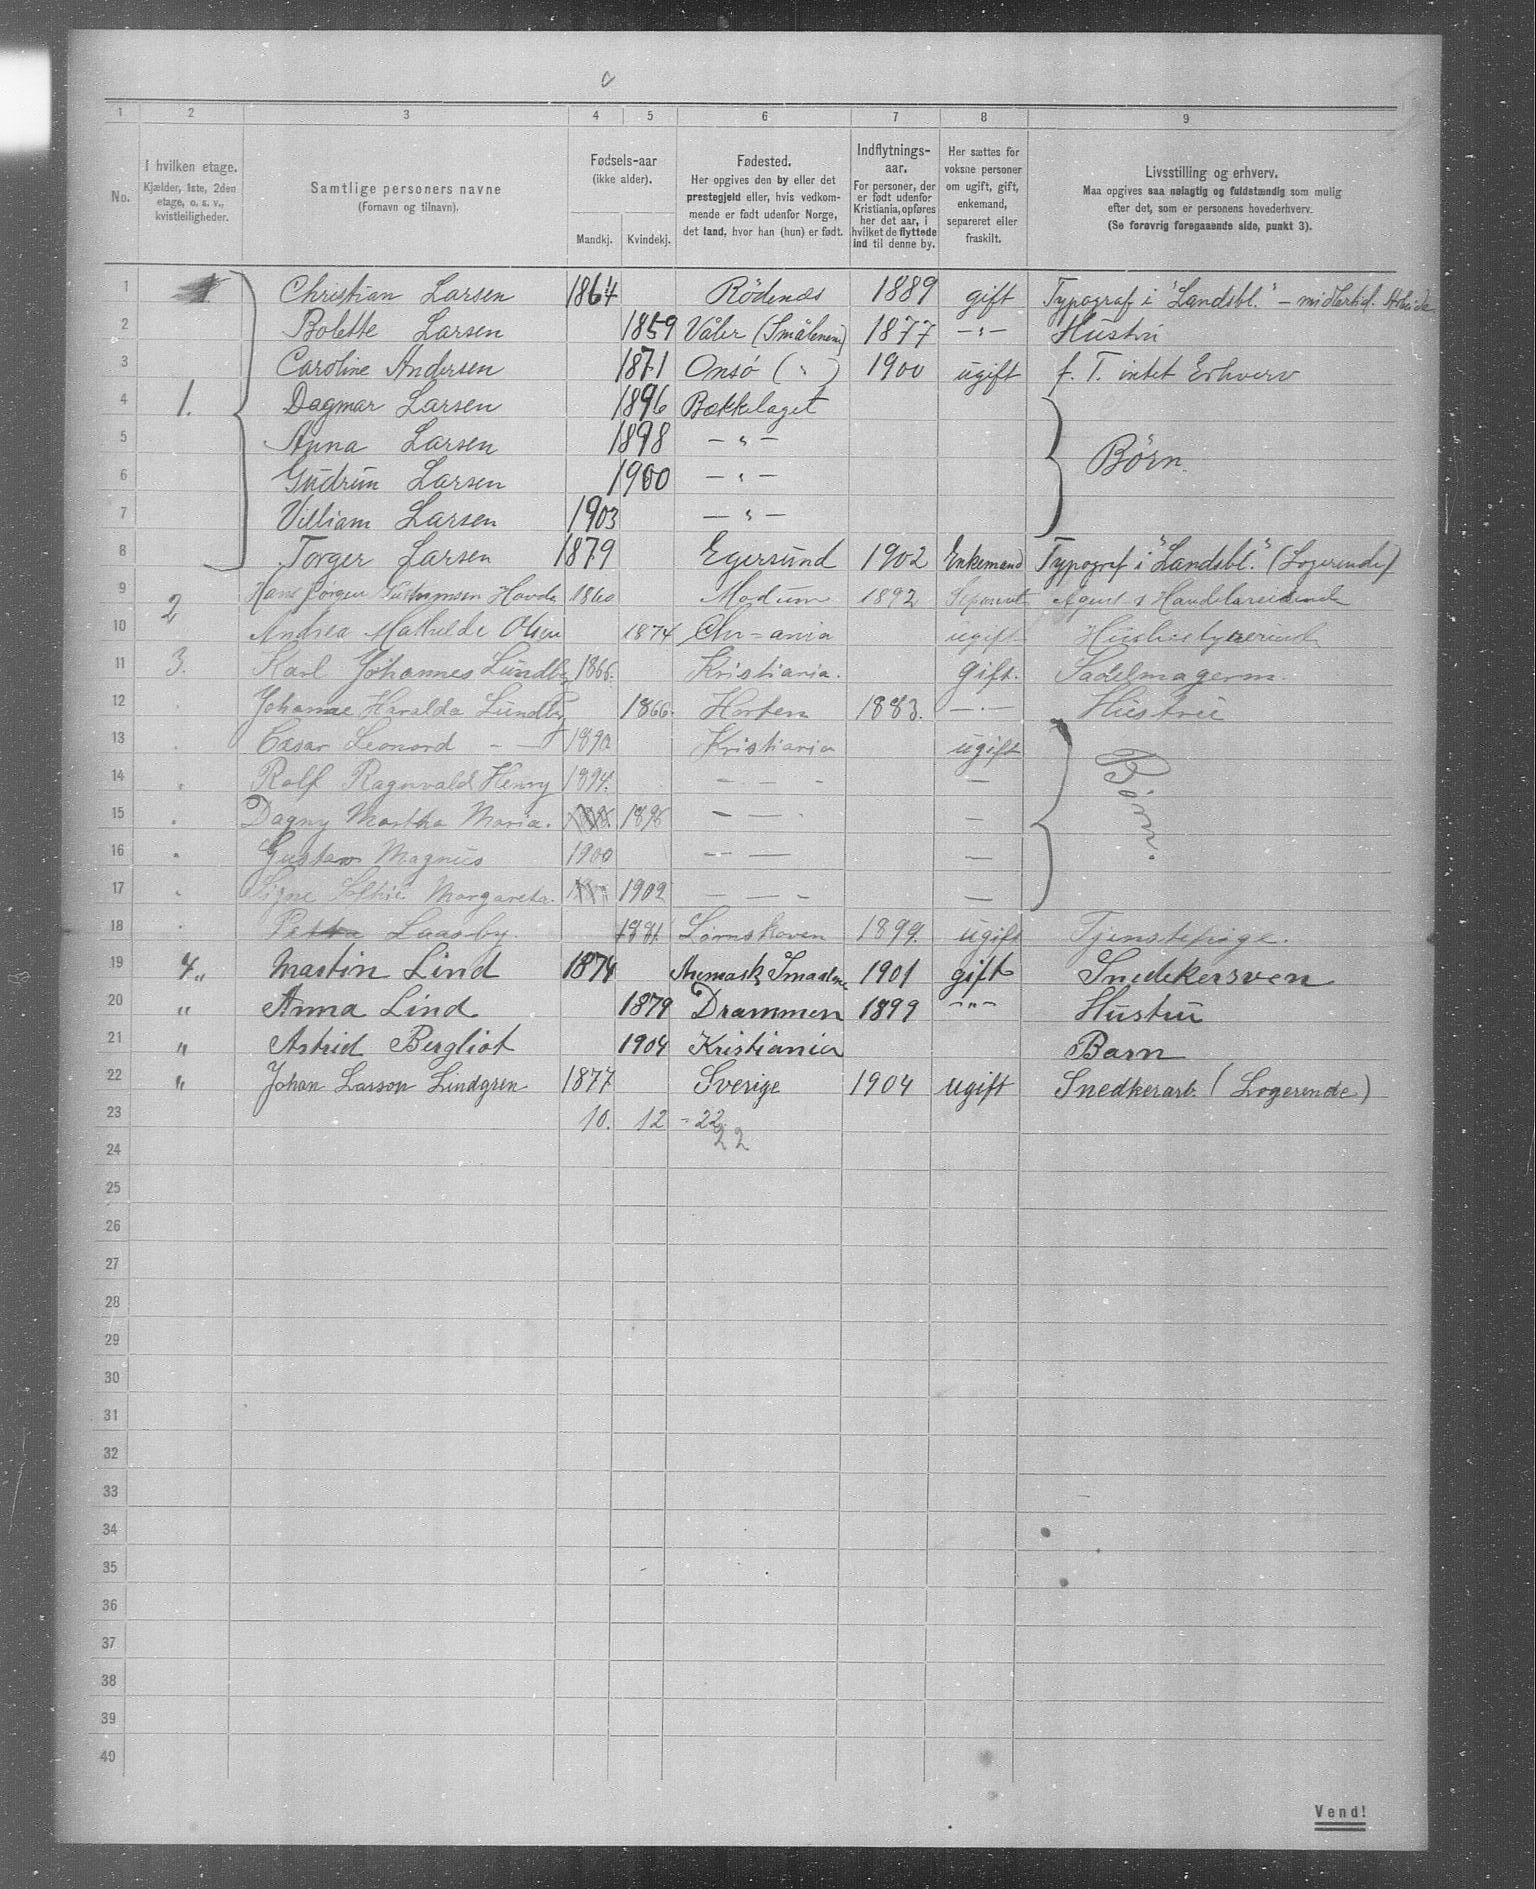 1 2 3 4 5 6 7 8 9
No.
I hvilken etage.
Kjælder, 1ste, 2den
etage, o. s. v.,
kvistleiligheder.
Samtlige personers navne
(Fornavn og tilnavn).
Fødsels-aar
(ikke alder).
Mandkj. Kvindekj.
Fødested.
Her opgives den by eller det
prestegjeld eller, hvis vedkom-
mende er født udenfor Norge,
det land, hvor han (hun) er født.
Indflytnings-
aar.
For personer, der
er født udenfor
Kristiania, opføres
her det aar, i
hvilket de flyttede
ind til denne by.
Her sættes for
voksne personer
om ugift, gift,
enkemand,
separeret eller
fraskilt.
Livsstilling og erhverv.
Maa opgives saa nøiagtig og fuldstændig som mulig
efter det, som er personens hovederhverv.
(Se forøvrig foregaaende side, punkt 3).
1 Christian Larsen 1864 Rödenæs 1889 gift Typograf i "Landsbl." – midlertid.
2 Bolette Larsen 1859 Våler (Smålenene) 1877 –"– Hustru
3 Caroline Andersen 1871 Onsö ( " ) 1900 ugift f. T. intet Erhverv
4 1. Dagmar Larsen 1896 Bækkelaget
5 Anna Larsen 1898 –"–
6 Gudrun Larsen 1900 –"– Börn.
7 Villiam Larsen 1903 –"–
8 Torger Larsen 1879 Egersund 1902 Enkemand Typograf i "Landsbl." (Logerende)
9 2 Hans Jörgen Hovde 1860 Modum 1892 Separeret Agent & Handelsreisende
10 Andrea Mathilde Olsen 1874 Chr-ania ugift Husbestyrerinde
11 3. Karl Johannes Lundby 1866. Kristiania. gift. Sadelmagerm.
12 Johanne Haralda Lundby 1866. Horten 1883. –"– Hustru
13 Cæsar Leonord – – 1890 Kristiania ugift
14 Rolf Ragnvald Henry 1894. – – – –
15 Dagny Martha Maria. 1896 – – – Börn.
16 Gustav Magnus 1900 – – –
17 Signe Sofhie Margareta. 1902 – – – –
18 Petra Laasby. 1881. Lörnskoven 1899. ugift Tjenestepige.
19 4.. Martin Lind 1874 Aremark, Smaalene 1901 gift Snedekersven
20 " Anna Lind 1879 Drammen 1899 –"– Hustru
21 " Astrid Bergliot 1904 Kristiania Barn
22 " Johan Larsson Lindgren 1877 Sverige 1904 ugift Snedkerarb. (Logerende)
23 10. 12 = 22.
22
24
25
26
27
28
29
30
31
32
33
34
35
36
37
38
39
40
Vend!